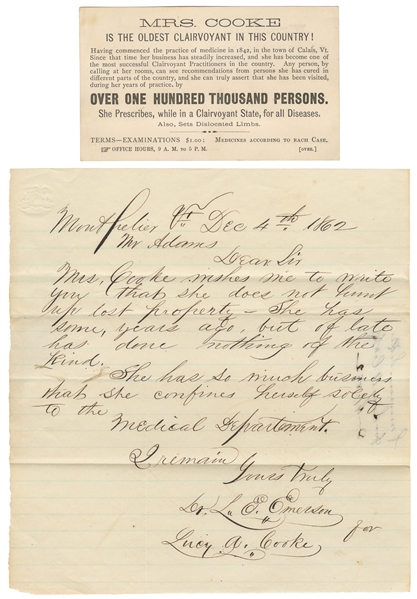 MRS. COOKE
IS THE OLDEST CLAIRVOYANT IN THIS COUNTRY!
Having commenced the practice of medicine in 1842, in the town of Calais, Vt.
Since that time her business has steadily increased, and she has become one of
the most successful Clairvoyant Practitioners in the country. Any person, by
calling at her rooms, can see recommendations from persons she has cured in
different parts of the country, and she can truly assert that she has been visited,
during her years of practice, by
OVER ONE HUNDRED THOUSAND PERSONS.
She Prescribes, while in a Clairvoyant State, for all Diseases.
Also, Sets Dislocated Limbs.
TERMS—EXAMINATIONS $1.00: MEDICINES ACCORDING TO EACH CASE.
OFFICE HOURS, 9 A. M. TO 5 P. M. [OVER.]
Montpelier Vt Dec 4th 1862
Mr Adams
Dear Sir
Mrs, Cooke wishes me to write
you that she does not hunt
up lost property – She has
some, years ago, but of late
has done nothing of the
Kind.
She has so much business
that she confines herself solely
to the
Medical Department.
I remain
Yours Truly
Dr. L. E. Emerson
for
Lucy A. Cooke